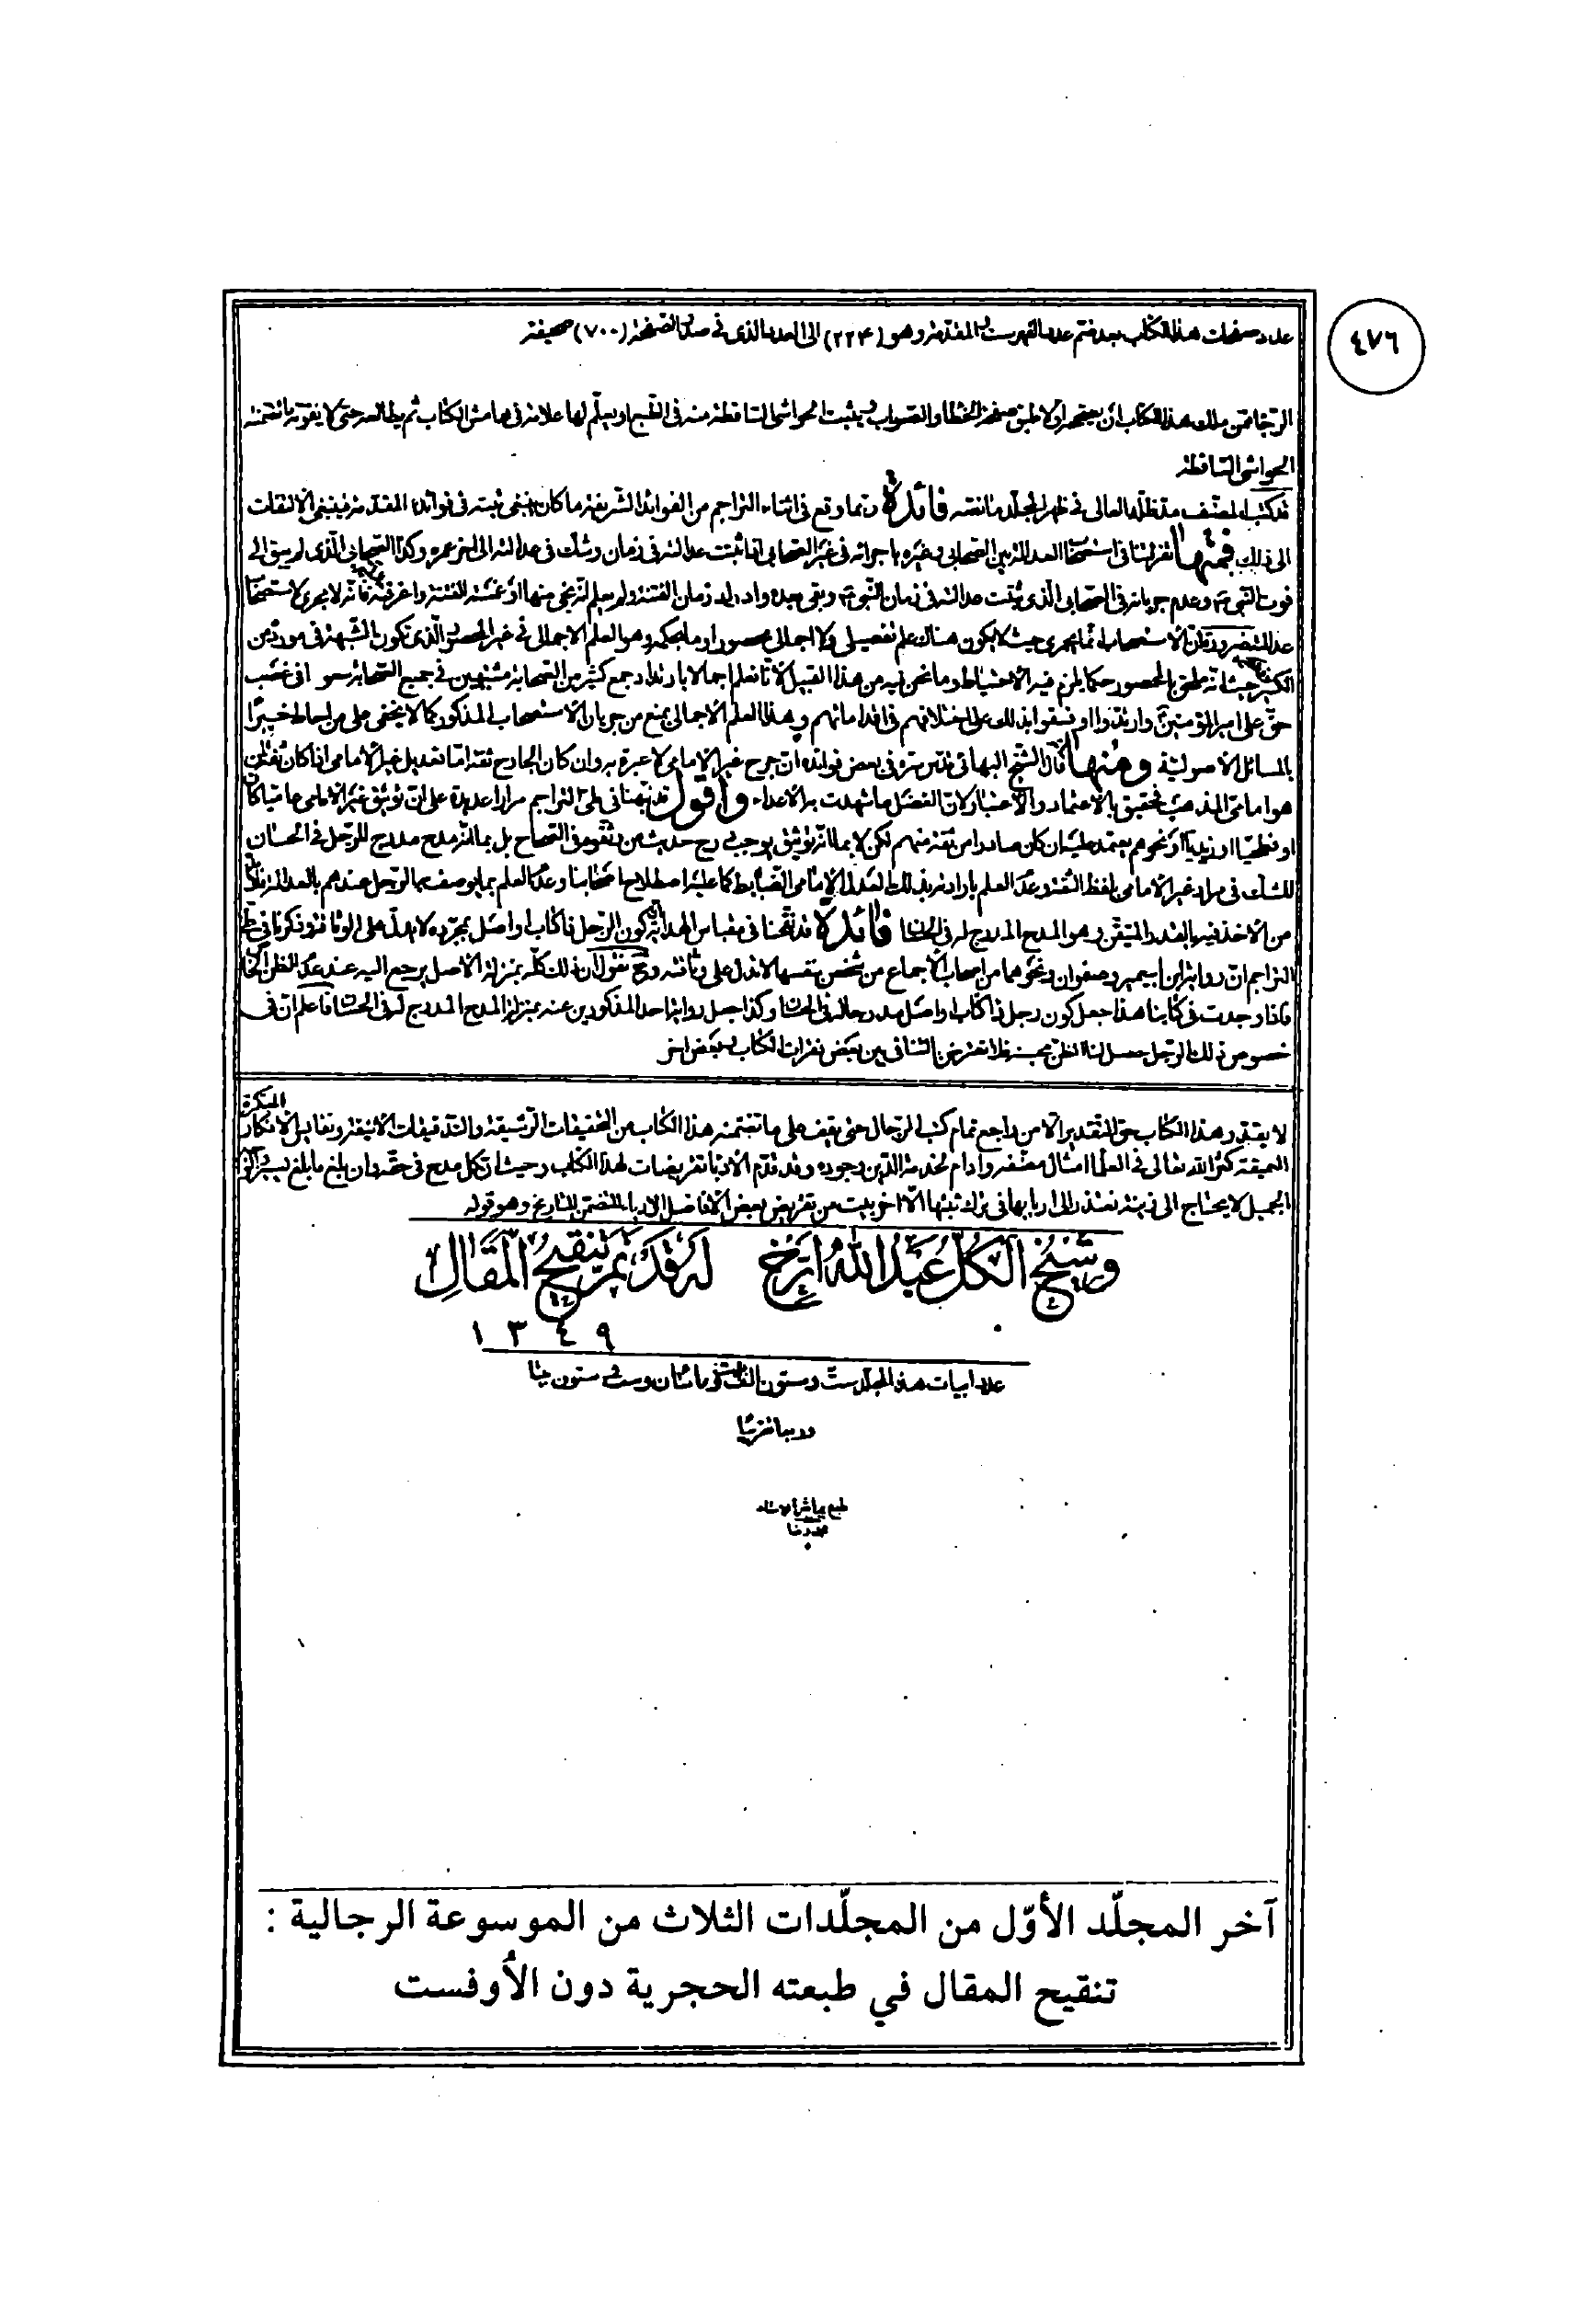 ٤٧٦
عدد صفحات هذا الكتاب بعد ضم عدد الفهرست والمقدمة وهو (٢٢٤) الى العدد الذى فى صدر الصفحة (٧٠٠) صحيفة
الرجا ممن ملك هذا الكتاب ان يصححه اولا طبق صفحة الخطا والصواب ويثبت الحواشى الساقطة منه فى الطبع او يعلم لها علامة فى هامش الكتاب ثم يطالعه حتى لا يفوته ما تضمنته
الحواشى الساقطة
قد كتب المصنف مد ظله العالى فى ظهر المجلد ما نصه فائدة ربما وقع فى اثناء التراجم من الفوائد الشريفة ما كان ينبغى ثبته فى فوائد المقدمة فينبغى الالتفات
الى ذلك فمنها تفرقتنا فى استصحاب العدالة بين الصحابى وغيره باجرائه فى غير الصحابى اذا ثبتت عدالته فى زمان وشك فى عدالته الى اخر عمره وكذا الصحابى الذى لم يبق الى
فوت النبى ص وعدم جريانه فى الصحابى الذى ثبتت عدالته فى زمان النبى ص وبقى بعده وادرك زمان الفتنة ولم يعلم انه نجى منها او غشته الفتنة واغرقته فانه لا يجرى لاستصحاب
عدالته ضرورة ان الاستصحاب انما يجرى حيث لا يكون هناك علم تفصيلى ولا اجمالى محصور او ما بحكمه وهو العلم الاجمالى فى غير المحصور الذى تكون الشبهة فى مورده من
الكثير فى الكثير حيث انه يلحق بالمحصور حكما يلزم فيه الاحتياط وما نحن فيه من هذا القبيل لانا نعلم اجمالا بارتداد جمع كثير من الصحابة مشتبهين فى جميع الصحابة سعوا فى غصب
حق على امير المؤمنين وارتدوا او فسقوا بذلك على اختلافهم فى اقداماتهم وهذا العلم الاجمالى يمنع من جريان الاستصحاب المذكور كما لا يخفى على من احاط خبرا
بالمسائل الاصولية ومنها قال الشيخ البهائى قدس سره فى بعض فوائده ان جرح غير الامامى لا عبرة به وان كان الجارح ثقة اما تعديل غير الامامى اذا كان ثقة لمن
هو امامى المذهب فحقيق بالاعتماد والاعتبار لان الفضل ما شهدت به الاعداء واقول قد نبهنا فى طى التراجم مرارا عديدة على ان توثيق غير الامامى عاميا كان
او فطحيا او زيديا او نحوهم يعتمد عليه ان كان صادرا من ثقة منهم لكن لا بما انه توثيق يوجب درج حديث من وثقوه فى الصحاح بل بما انه مدح مدرج للرجل فى الحسان
للشك فى مراد غير الامامى بلفظ الثقة وعدم العلم بارادته بذلك العدل الامامى الضابط كما عليه اصطلاح اصحابنا وعدم العلم بما يوصف به الرجل عندهم بالعدالة فلا بد
من الاخذ فيه بالقدر المتيقن وهو المدح المدرج له فى الحسان فائدة قد نقحنا فى مقباس الهداية ان كون الرجل ذا كتاب او اصل بمجرده لا يدل على الوثاقة وذكرنا فى طى
التراجم ان رواية ابن ابى عمير وصفوان ونحوهما من اصحاب الاجماع عن شخص بنفسها لا تدل على وثاقته ونحن نقول ان ذلك كله بمنزلة الاصل يرجع اليه عند عدم الظن بخلافه
فاذا وجدت فى كتابنا هذا جعل كون رجل ذا كتاب او اصل مدرجا له فى الحسان وكذا جعل رواية احد المذكورين عنه بمنزلة المدح المدرج له فى الحسان فاعلم ان فى
خصوص ذلك الرجل حصل لنا الظن بحسنه فلا تعترض بالتنافى بين بعض فقرات الكتاب وبعض اخر
لا يقدر هذا الكتاب حق التقدير الا من راجع تمام كتب الرجال حتى يقف على ما تضمنه هذا الكتاب من التحقيقات الرشيقة والتدقيقات الانيقة ونفايس الافكار المبتكرة
العميقة كثر الله تعالى فى العلماء امثال مصنفه وادام لخدمة الدين وجوده وقد قدم الادباء تقريضات لهذا الكتاب وحيث ان كل مدح فى حقه وان بلغ ما بلغ
الجميل لا يحتاج الى زينة نعتذر الى اربابها فى ترك ثبتها الا اخر بيت من تقريض بعض الافاضل الادباء المتضمن للتاريخ وهو قوله
وشيخ الكل عبد الله ارخ له قد تم تنقيح المقال
١٣٤٩
عدد ابيات هذا المجلد ست وستون الف ومائتان وست وستون بيتا
تقريبا
طبع بمباشرة الاستاد
محمد رضا
آخر المجلّد الأوّل من المجلّدات الثلاث من الموسوعة الرجالية :
تنقيح المقال في طبعته الحجرية دون الأوفست